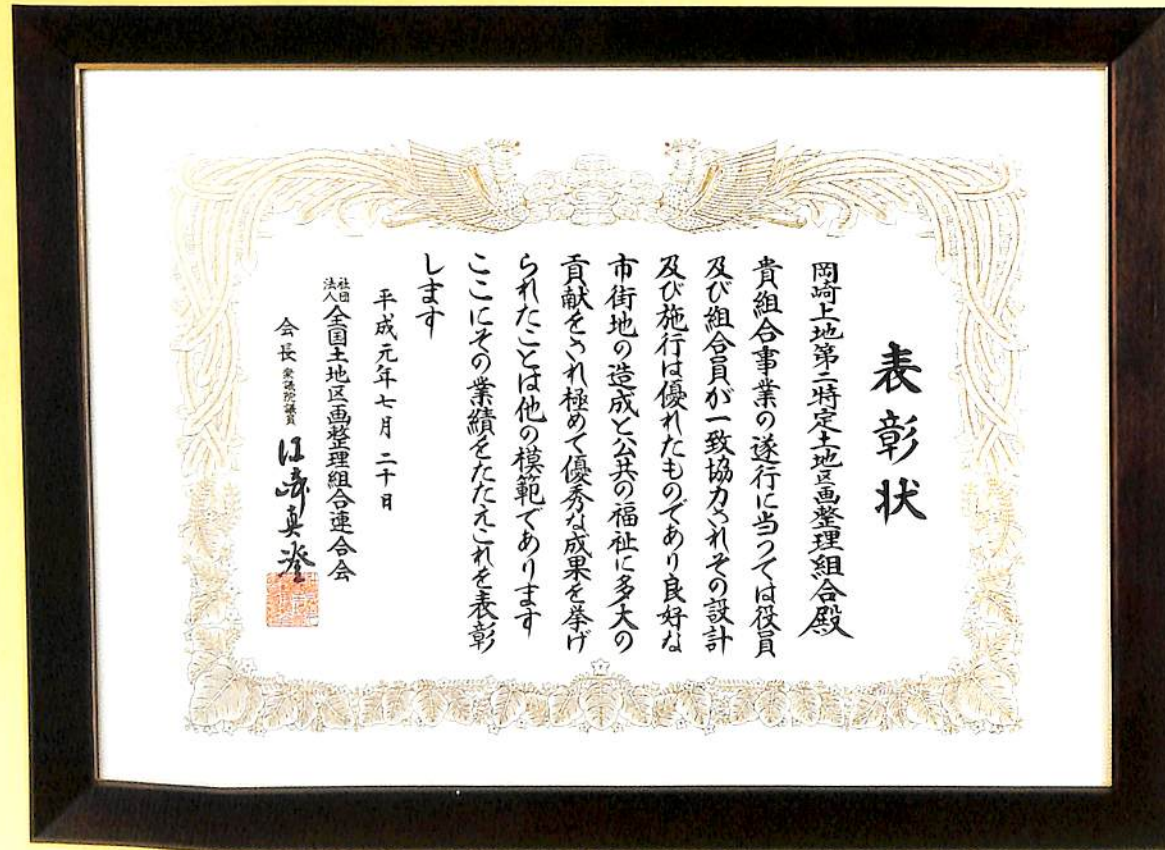 表彰状
岡崎上地第二特定土地区画整理組合殿
貴組合事業の遂行に当つては役員
及び組合員が一致協力されその設計
及び施行は優れたものであり良好な
市街地の造成と公共の福祉に多大の
貢献をされ極めて優秀な成果を挙げ
られたことは他の模範であります
ここにその業績をたたえこれを表彰
します
平成元年七月二十日
社団法人全国土地区画整理組合連合会
会長 衆議院議員 江﨑真澄